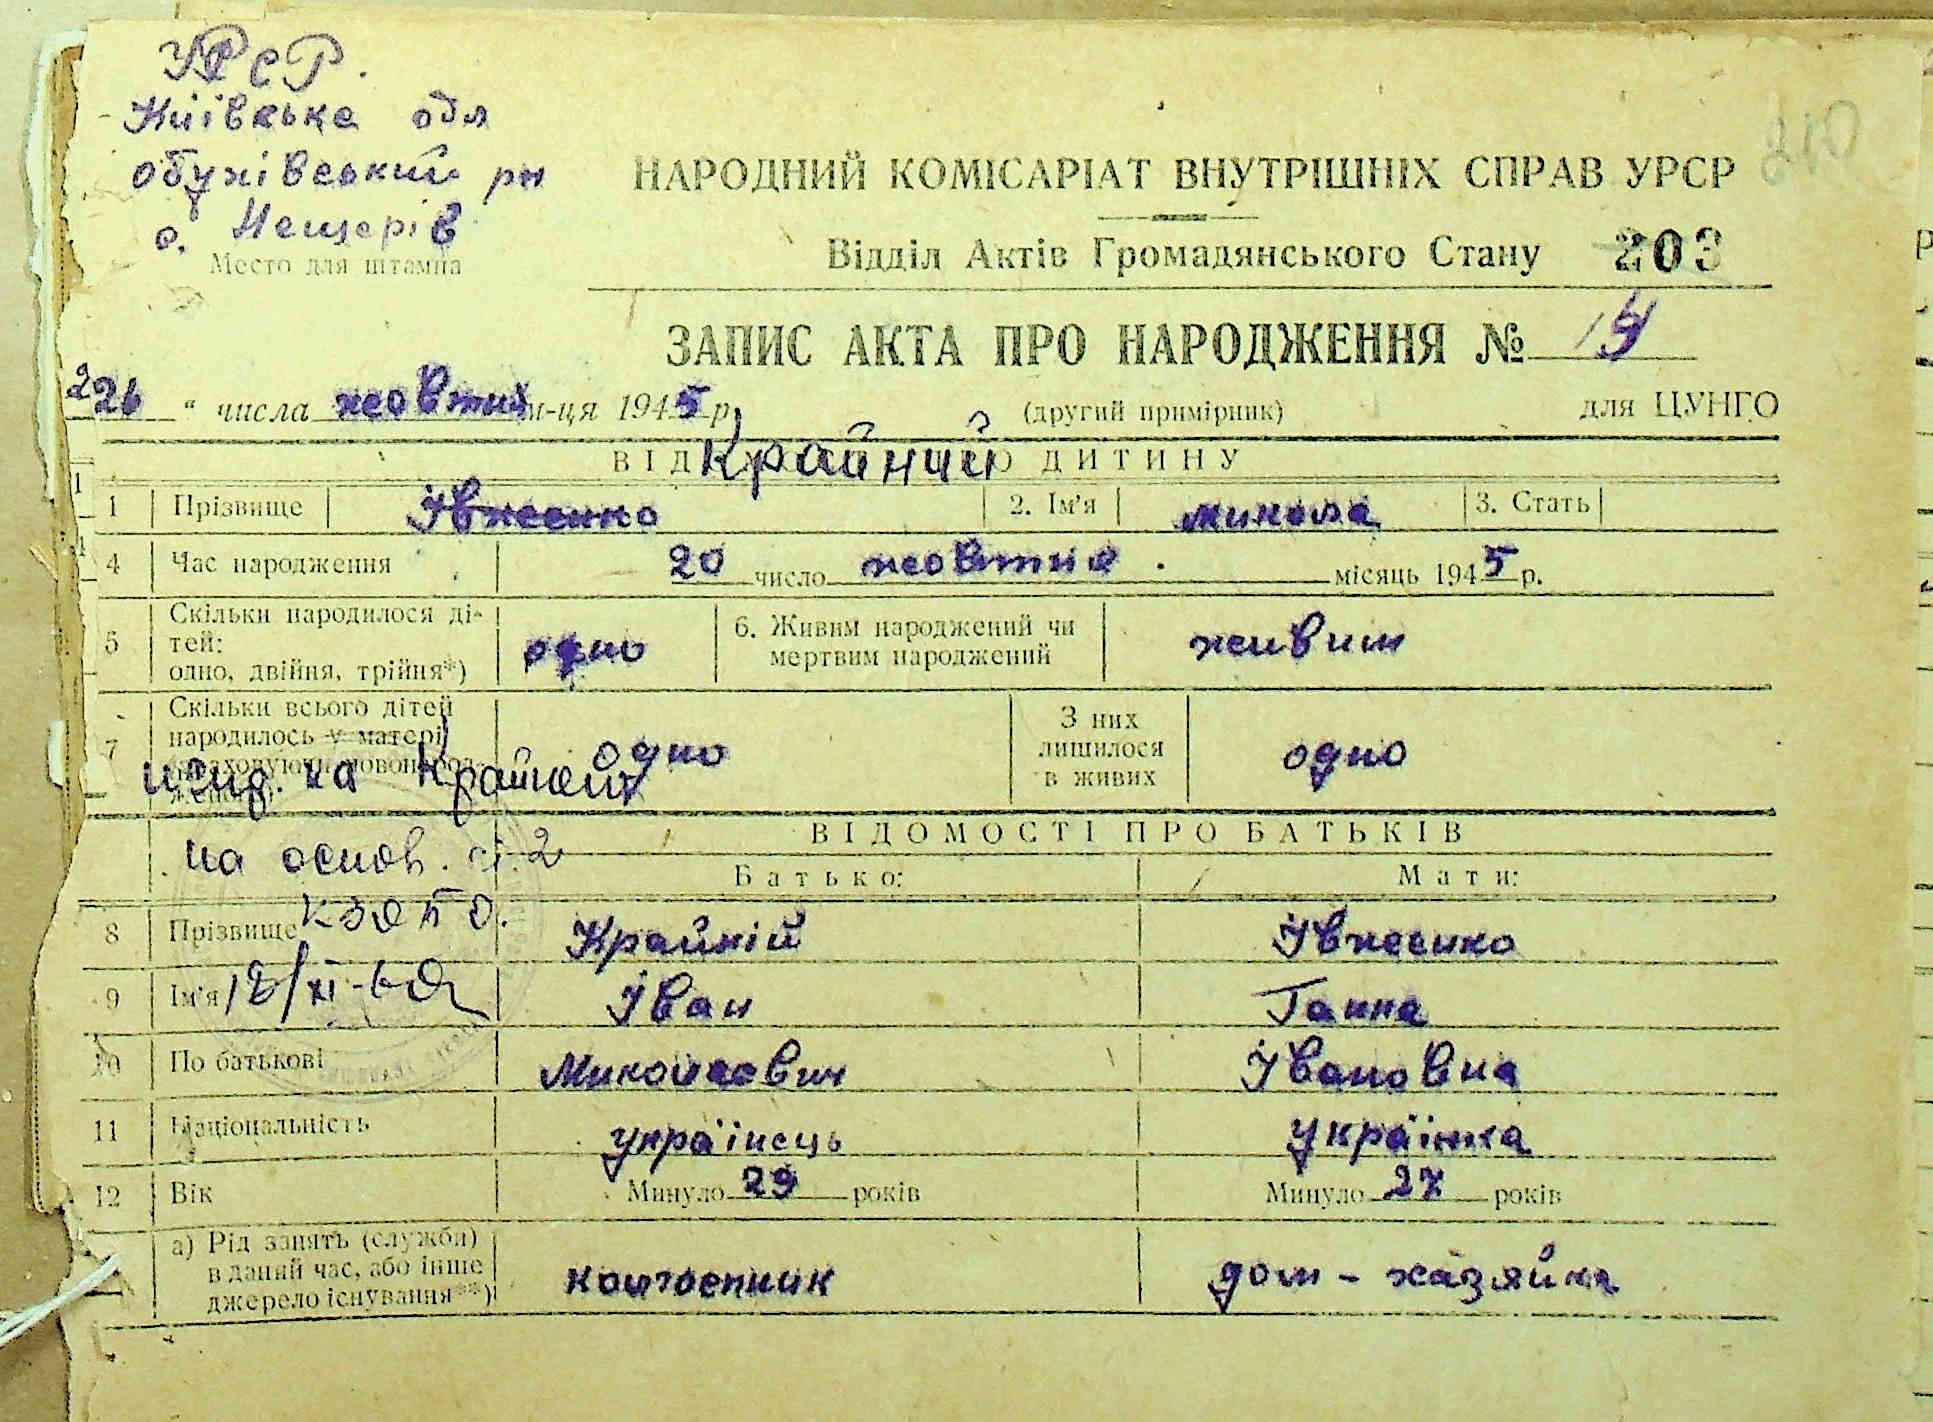 УРСР.
Київська обл
Обухівський рн
с. Нещерів
Место для штампа
210
НАРОДНИЙ КОМІСАРІАТ ВНУТРІШНІХ СПРАВ УРСР
Відділ Актів Громадянського Стану 203
ЗАПИС АКТА ПРО НАРОДЖЕННЯ №
26 " числа жовтня м-ця 1945 р. (другий примірник) для ЦУНГО
Крайний
ВІД ДИТИНУ
1 Прізвище Івженко 2. Ім'я микола 3. Стать
4 Час народження 20 число жовтня місяць 1945 р.
5 Скільки народилося ді-
тей:
одно, двійня, трійня*)
одно
6. Живим народжений чи
мертвим народжений
живим
7 Скільки всього дітей
народилось у матері
одно
З них
лишилося
в живих
одно
на Крайний
на основ. ст. 2
ВІДОМОСТІ ПРО БАТЬКІВ
Батько: Мати:
8 Прізвище Крайній Івженко
9 Ім'я Іван Ганна
18/XI-60
10 По батькові Миколаєвич Івановна
11 Національність українець українка
12 Вік Минуло 29 років Минуло 27 років
а) Рід занять (служби)
в даний час, або інше
джерело існування**)
колгоспник дом-хазяйка